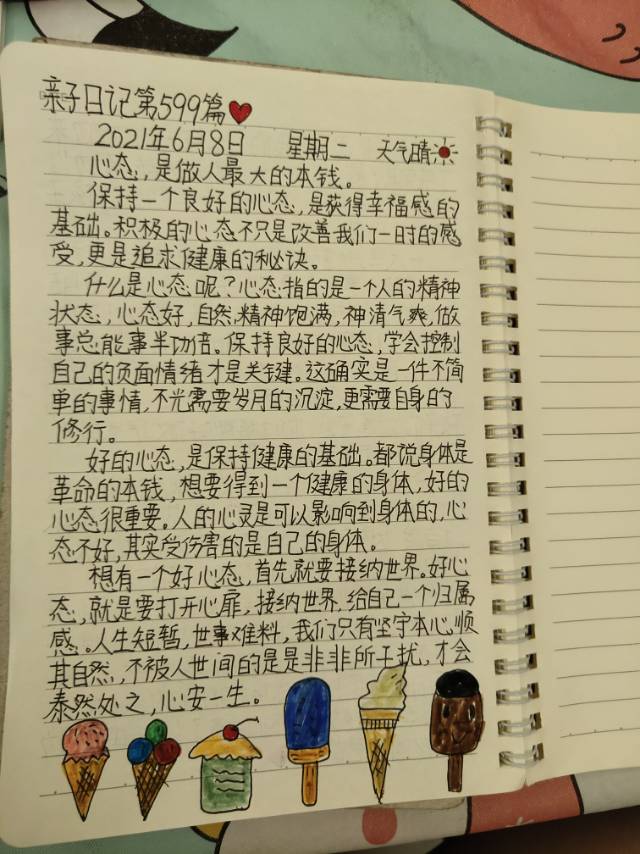 亲子日记第599篇
2021年6月8日 星期二 天气晴
心态,是做人最大的本钱。
保持一个良好的心态,是获得幸福感的
基础。积极的心态不只是改善我们一时的感
受,更是追求健康的秘诀。
什么是心态呢?心态指的是一个人的精神
状态,心态好,自然,精神饱满,神清气爽,做
事总能事半功倍。保持良好的心态,学会控制
自己的负面情绪才是关键。这确实是一件不简
单的事情,不光需要岁月的沉淀,更需要自身的
修行。
好的心态,是保持健康的基础。都说身体是
革命的本钱,想要得到一个健康的身体,好的
心态很重要。人的心灵是可以影响到身体的,心
态不好,其实受伤害的是自己的身体。
想有一个好心态,首先就要接纳世界。好心
态,就是要打开心扉,接纳世界,给自己一个归属
感。人生短暂,世事难料,我们只有坚守本心,顺
其自然,不被人世间的是是非非所干扰,才会
泰然处之,心安一生。